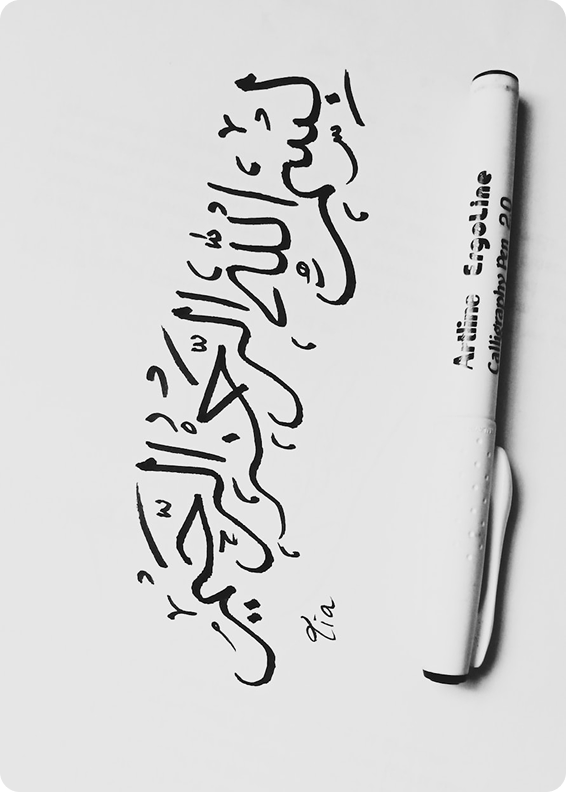 بِسْمِ اللّٰهِ الرَّحْمٰنِ الرَّحِيْمِ
Artline ErgoLine
Calligraphy Pen 2.0